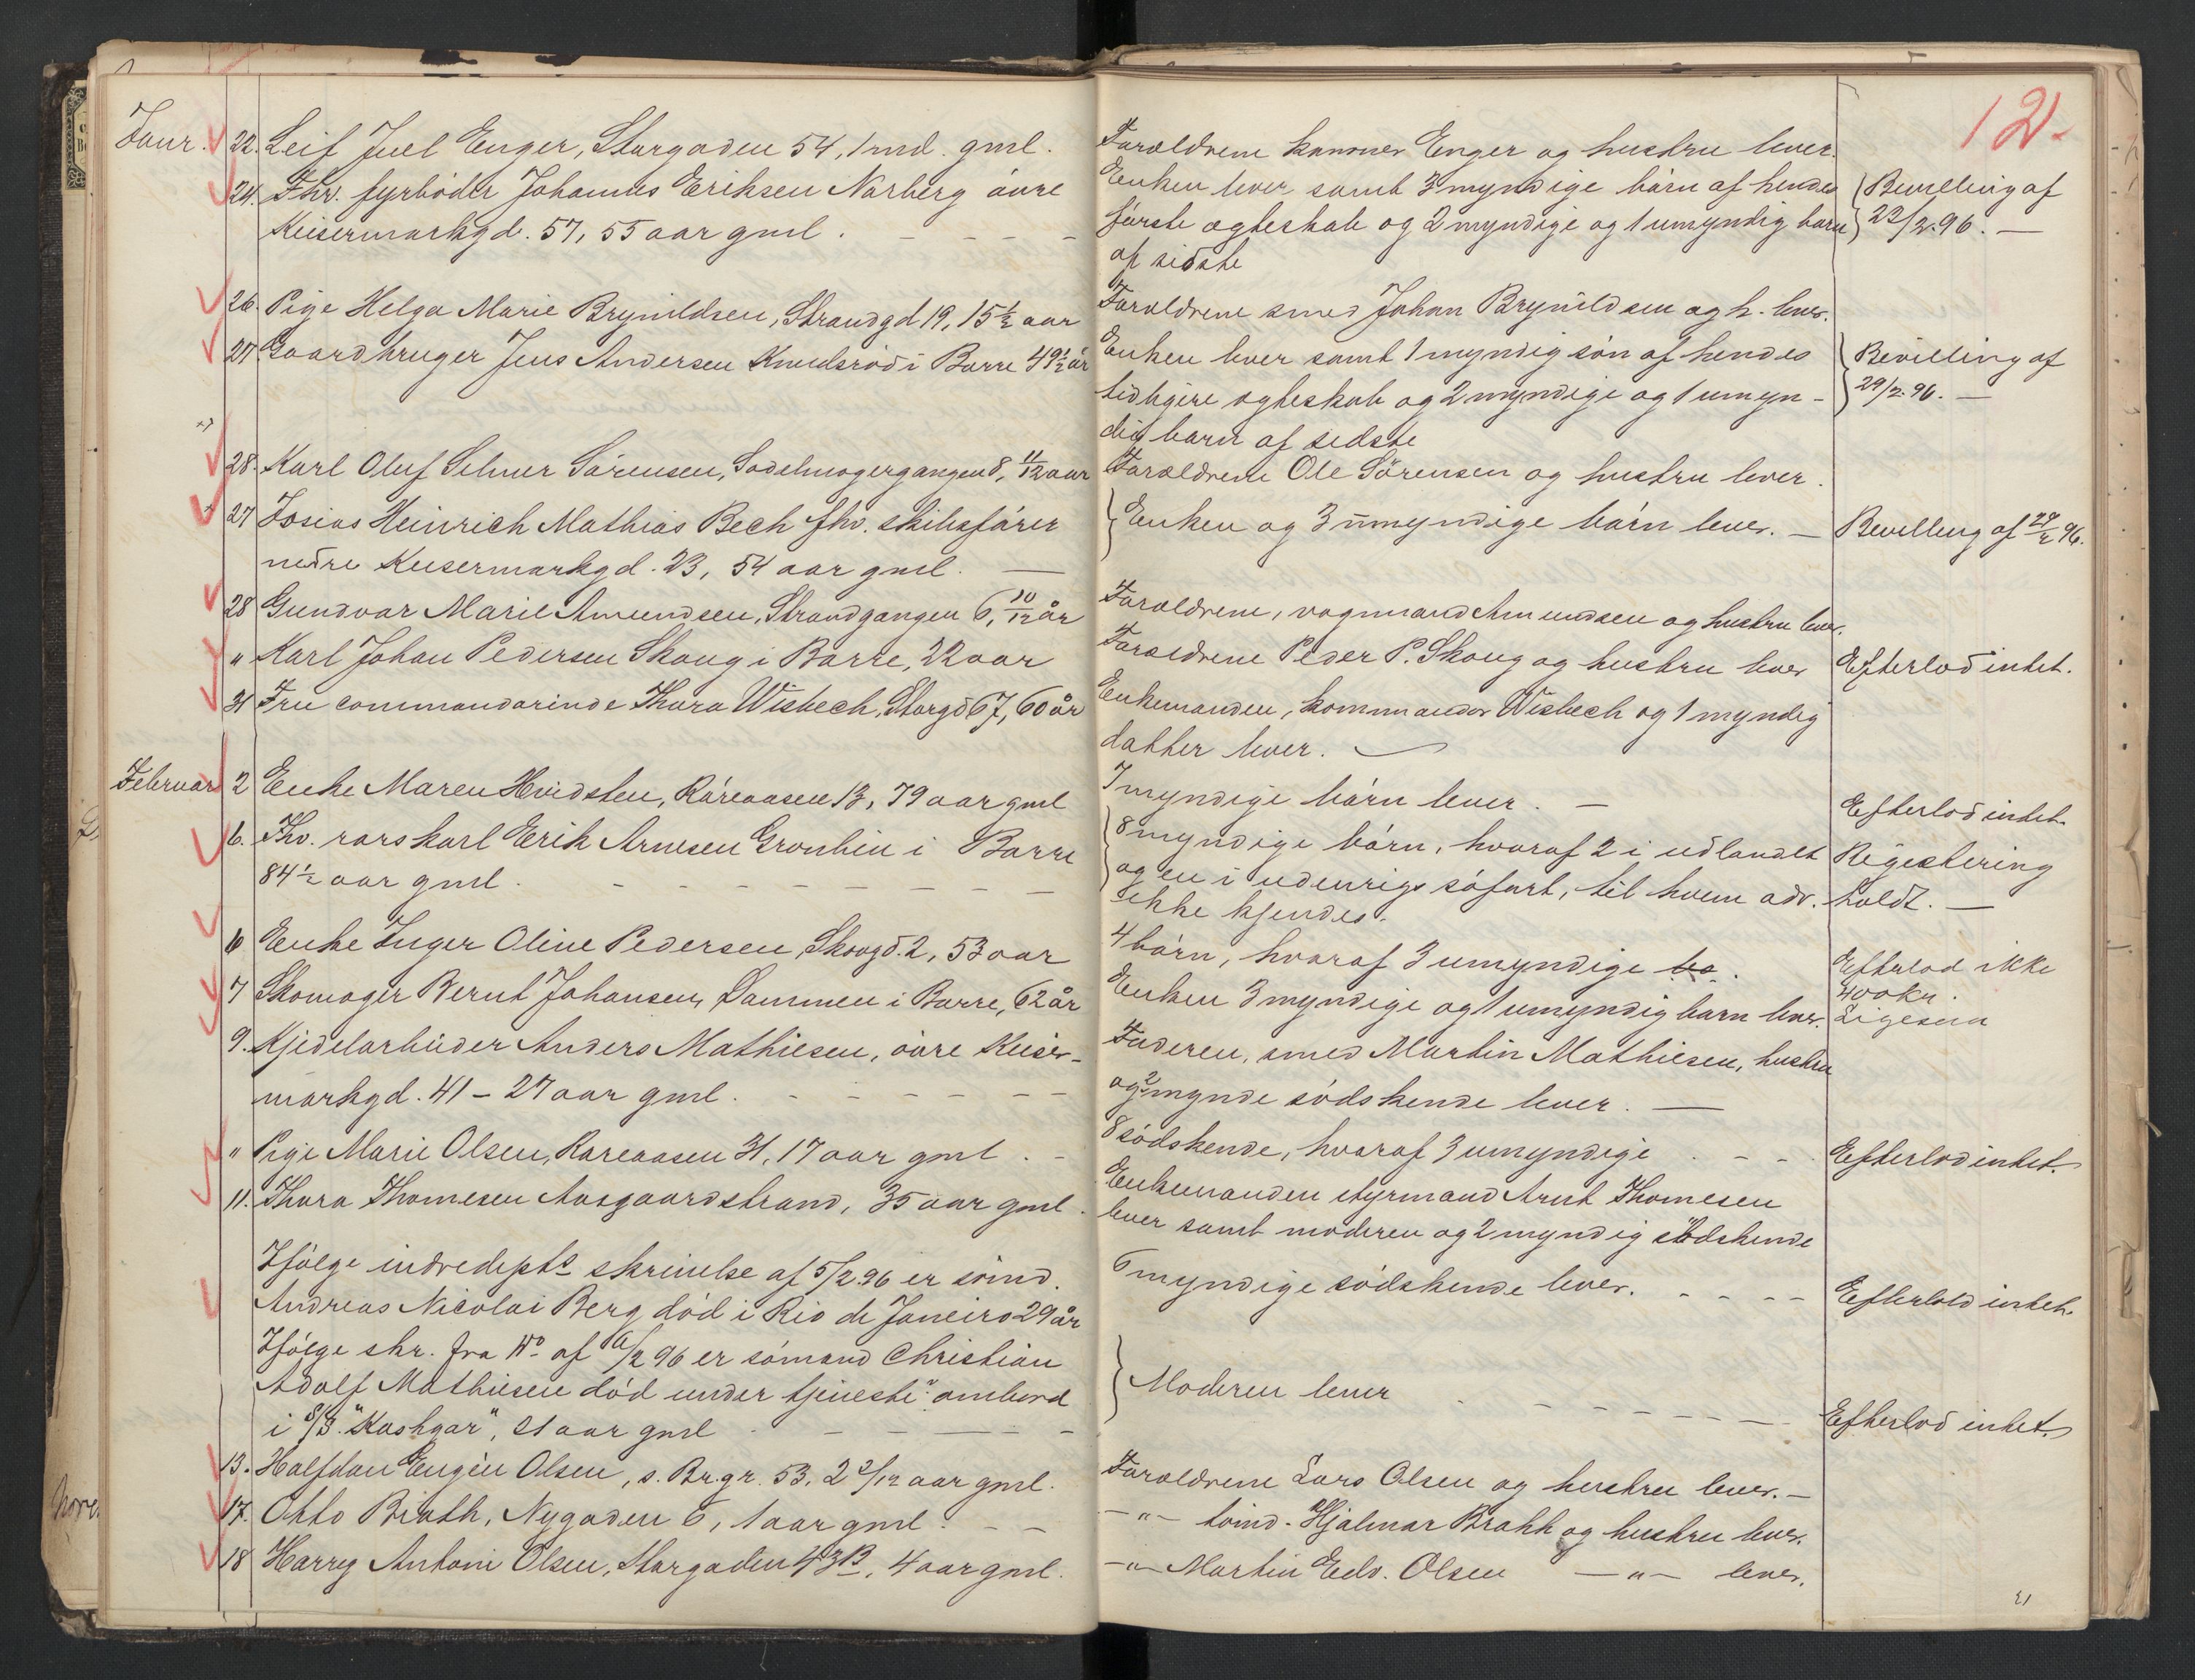 12.
Janr. 22. Leif Juel Enger, Storgaden 54, 1 md. gml.
24. Fhv. fyrbøder Johannes Eriksen Narberg øvre
Keisermarkgd. 57, 55 aar gml. - - - -
26. Pige Helga Marie Brynildsen, Strandgd 19, 15 1/2 aar
27. Gaardbruger Jens Andersen Knudsrød i Borre 49 1/2 år
28. Karl Oluf Selmer Sørensen, Sadelmagergangen 8, 11/12 aar
27 Josias Heinrich Mathias Bech fhv. skibsfører
nedre Keisermarkgd. 23, 54 aar gml. —
28 Gundvor Marie Amundsen, Strandgangen 6, 10/12 år
" Karl Johan Pedersen Skoug i Borre, 22 aar
31 Fru commandørinde Thora Wisbech, Storgd 67, 60 år
Februar 2 Enke Maren Hvidsten, Røreaasen 13, 79 aar gml
6. Fhv. rorskarl Erik Arnesen Gronlien i Borre
84 1/2 aar gml. - - - - - - -
6 Enke Inger Oline Pedersen, Skovgd. 2, 53 aar
7 Skomager Bernt Johansen, Dammen i Borre, 62 år
9. Kjedelarbeider Anders Mathiesen, øvre Keiser-
markgd. 41 - 27 aar gml. - - - - - -
" Pige Marie Olsen, Røreaasen 31, 17 aar gml. -
11. Thora Thomesen Aasgaardstrand, 35 aar gml.
Ifølge indredepts skrivelse af 5/2 96 er sømd.
Andreas Nicolai Berg død i Rio de Janeiro 29 år
Ifølge skr. fra Do af 10/2 96 er sømand Christian
Adolf Mathiesen død under tjeneste ombord
i S/S. "Kashgar", 21 aar gml - - - - -
13. Halfdan Engin Olsen, s. Br.gr. 53, 2 2/12 aar gml.
17. Otto Brath, Nygaden 6, 1 aar gml. - -
18 Harry Antoni Olsen, Storgaden 43 B, 4 aar gml.
Forældrene kansner Enger og hustru lever.
Enken lever samt 3 myndige børn af hendes
første ægteskab og 2 myndige og 1 umyndig barn
af sidste
Bevilling af
22/2. 96. —
Forældrene smed Johan Brynildsen og h. lever.
Enken lever samt 1 myndig søn af hendes
tidligere ægteskab og 2 myndige og 1 umyn-
dig barn af sidste
Bevilling af
29/2. 96. —
Forældrene Ole Sørensen og hustru lever.
Enken og 3 umyndige børn lever. — Bevilling af 29/2 96.
Forældrene, vognmand Amundsen og hustru lever.
Forældrene Peder P. Skoug og hustru lever Efterlod intet.
Enkemanden, kommandør Wisbech og 1 myndig
datter lever. —
7 myndige børn lever. — Efterlod intet.
8 myndige børn, hvoraf 2 i udlandet Registering
og en i udenrigs søfart, til hvem adr. holdt. —
ikke kjendes.
4 børn, hvoraf 3 umyndige. Efterlod ikke
400 kr.
Enken 3 myndige og 1 umyndig barn lever. Ligesaa
Faderen, smed Martin Mathiesen, hustru
og 2 mynde sødskende lever. —
8 sødskende, hvoraf 3 umyndige . - - Efterlod intet.
Enkemanden styrmand Arnt Thomesen
lever samt moderen og 2 myndig sødskende
6 myndige sødskende lever. - - - - Efterlod intet.
Moderen lever - - - - - - Efterlod intet.
Forældrene Lars Olsen og hustru lever. —
— " — tømd. Hjalmar Brath og hustru lever.
— " — Martin Edv. Olsen — " — lever.